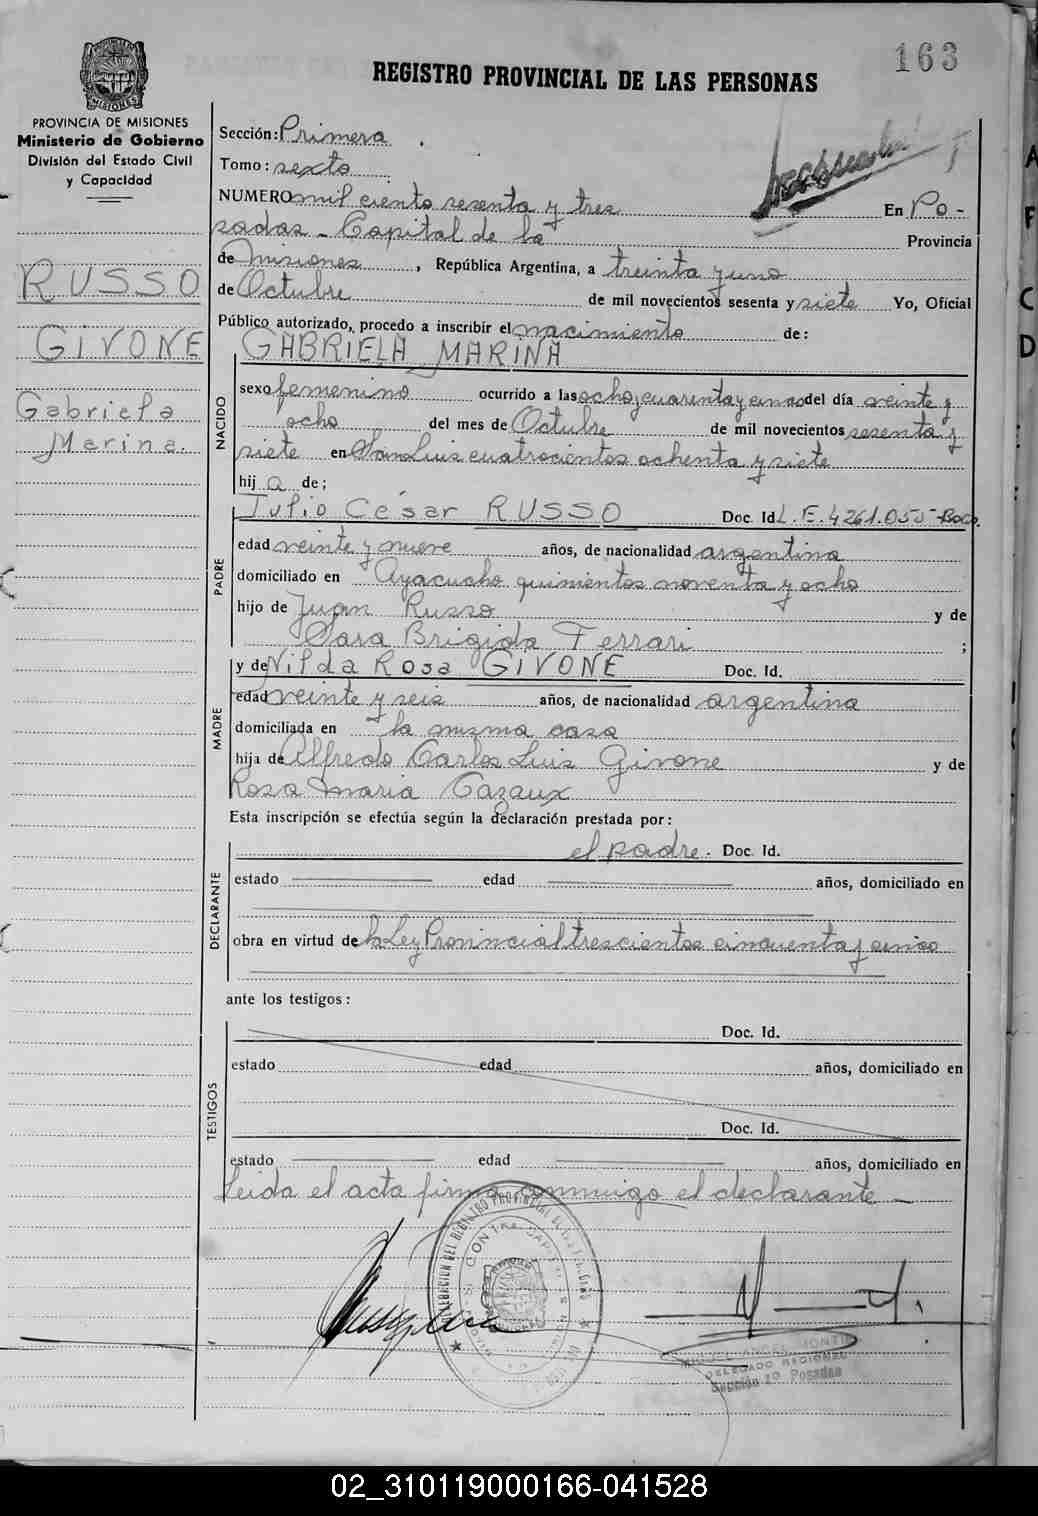 163
REGISTRO PROVINCIAL DE LAS PERSONAS
PROVINCIA DE MISIONES
Ministerio de Gobierno
División del Estado Civil
y Capacidad
RUSSO
GIVONE
Gabriela
Marina.
Sección: Primera
Tomo: sexto
NUMERO mil ciento sesenta y tres En Po-
sadas - Capital de la Provincia
de Misiones, República Argentina, a treinta y uno
de Octubre de mil novecientos sesenta y siete Yo, Oficial
Público autorizado, procedo a inscribir el nacimiento de:
GABRIELA MARINA
NACIDO
sexo femenino ocurrido a las ocho y cuarenta y cinco del día veinte y
ocho del mes de Octubre de mil novecientos sesenta y
siete en San Luis cuatrocientos ochenta y siete
hija de;
PADRE
Julio César RUSSO Doc. Id. L.E. 4261.055
edad veinte y nueve años, de nacionalidad argentina
domiciliado en Ayacucho quinientos noventa y ocho
hijo de Juan Russo y de
Sara Brigida Ferrari ;
MADRE
y de Nilda Rosa GIVONE Doc. Id.
edad veinte y seis años, de nacionalidad argentina
domiciliada en la misma casa
hija de Alfredo Carlos Luis Givone y de
Rosa Maria Cazaux
Esta inscripción se efectúa según la declaración prestada por:
DECLARANTE
el padre. Doc. Id.
estado edad años, domiciliado en
obra en virtud de la Ley Provincial trescientos cincuenta y cinco
ante los testigos:
TESTIGOS
Doc. Id.
estado edad años, domiciliado en
Doc. Id.
estado edad años, domiciliado en
Leida el acta firma conmigo el declarante -
DELEGADO REGIONAL
Sección 1º Posadas
02_310119000166-041528